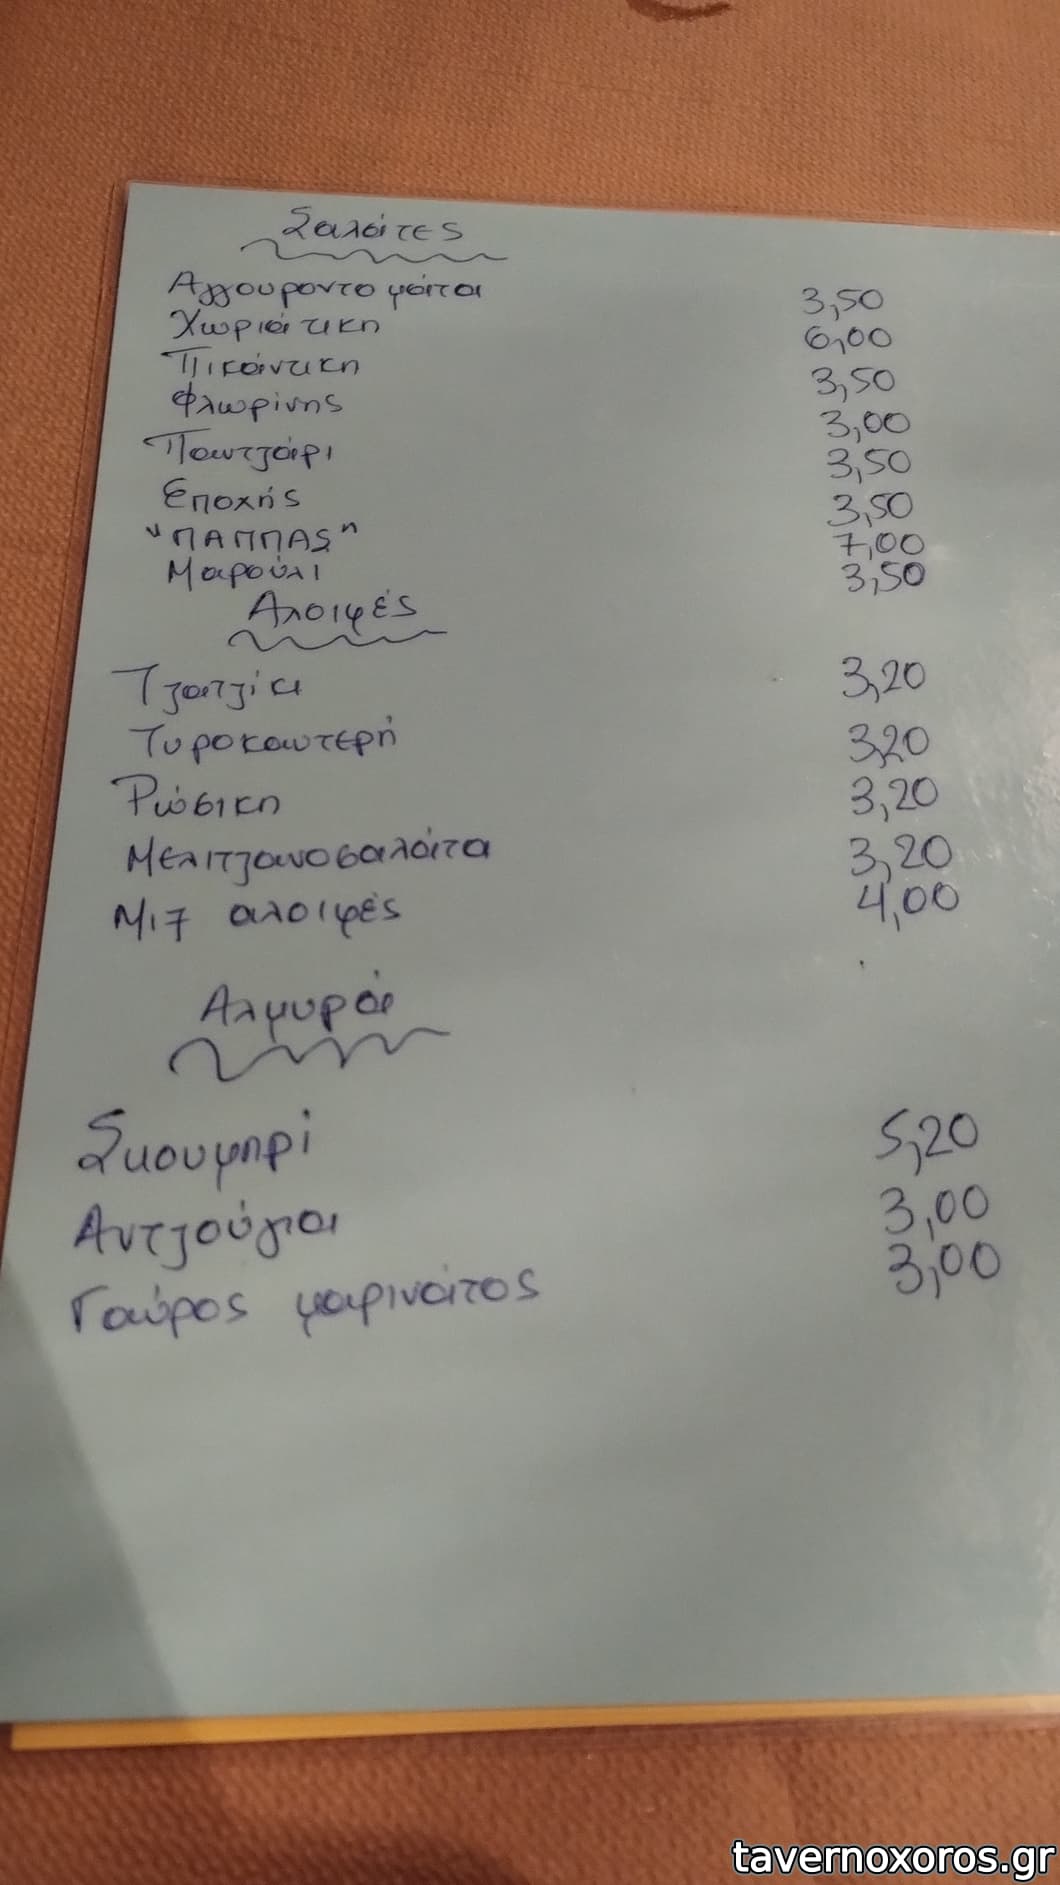 Σαλάτες
Αγγουροντομάτα 3,50
Χωριάτικη 6,00
Πικάντικη 3,50
Φλωρίνης 3,00
Παντζάρι 3,50
Εποχής 3,50
"ΠΑΠΠΑΣ" 7,00
Μαρούλι 3,50
Αλοιφές
Τζατζίκι 3,20
Τυροκαυτερή 3,20
Ρώσικη 3,20
Μελιτζανοσαλάτα 3,20
Μιξ αλοιφές 4,00
Αλμυρά
Σκουμπρί 5,20
Αντζούγια 3,00
Γαύρος μαρινάτος 3,00
tavernoxoros.gr